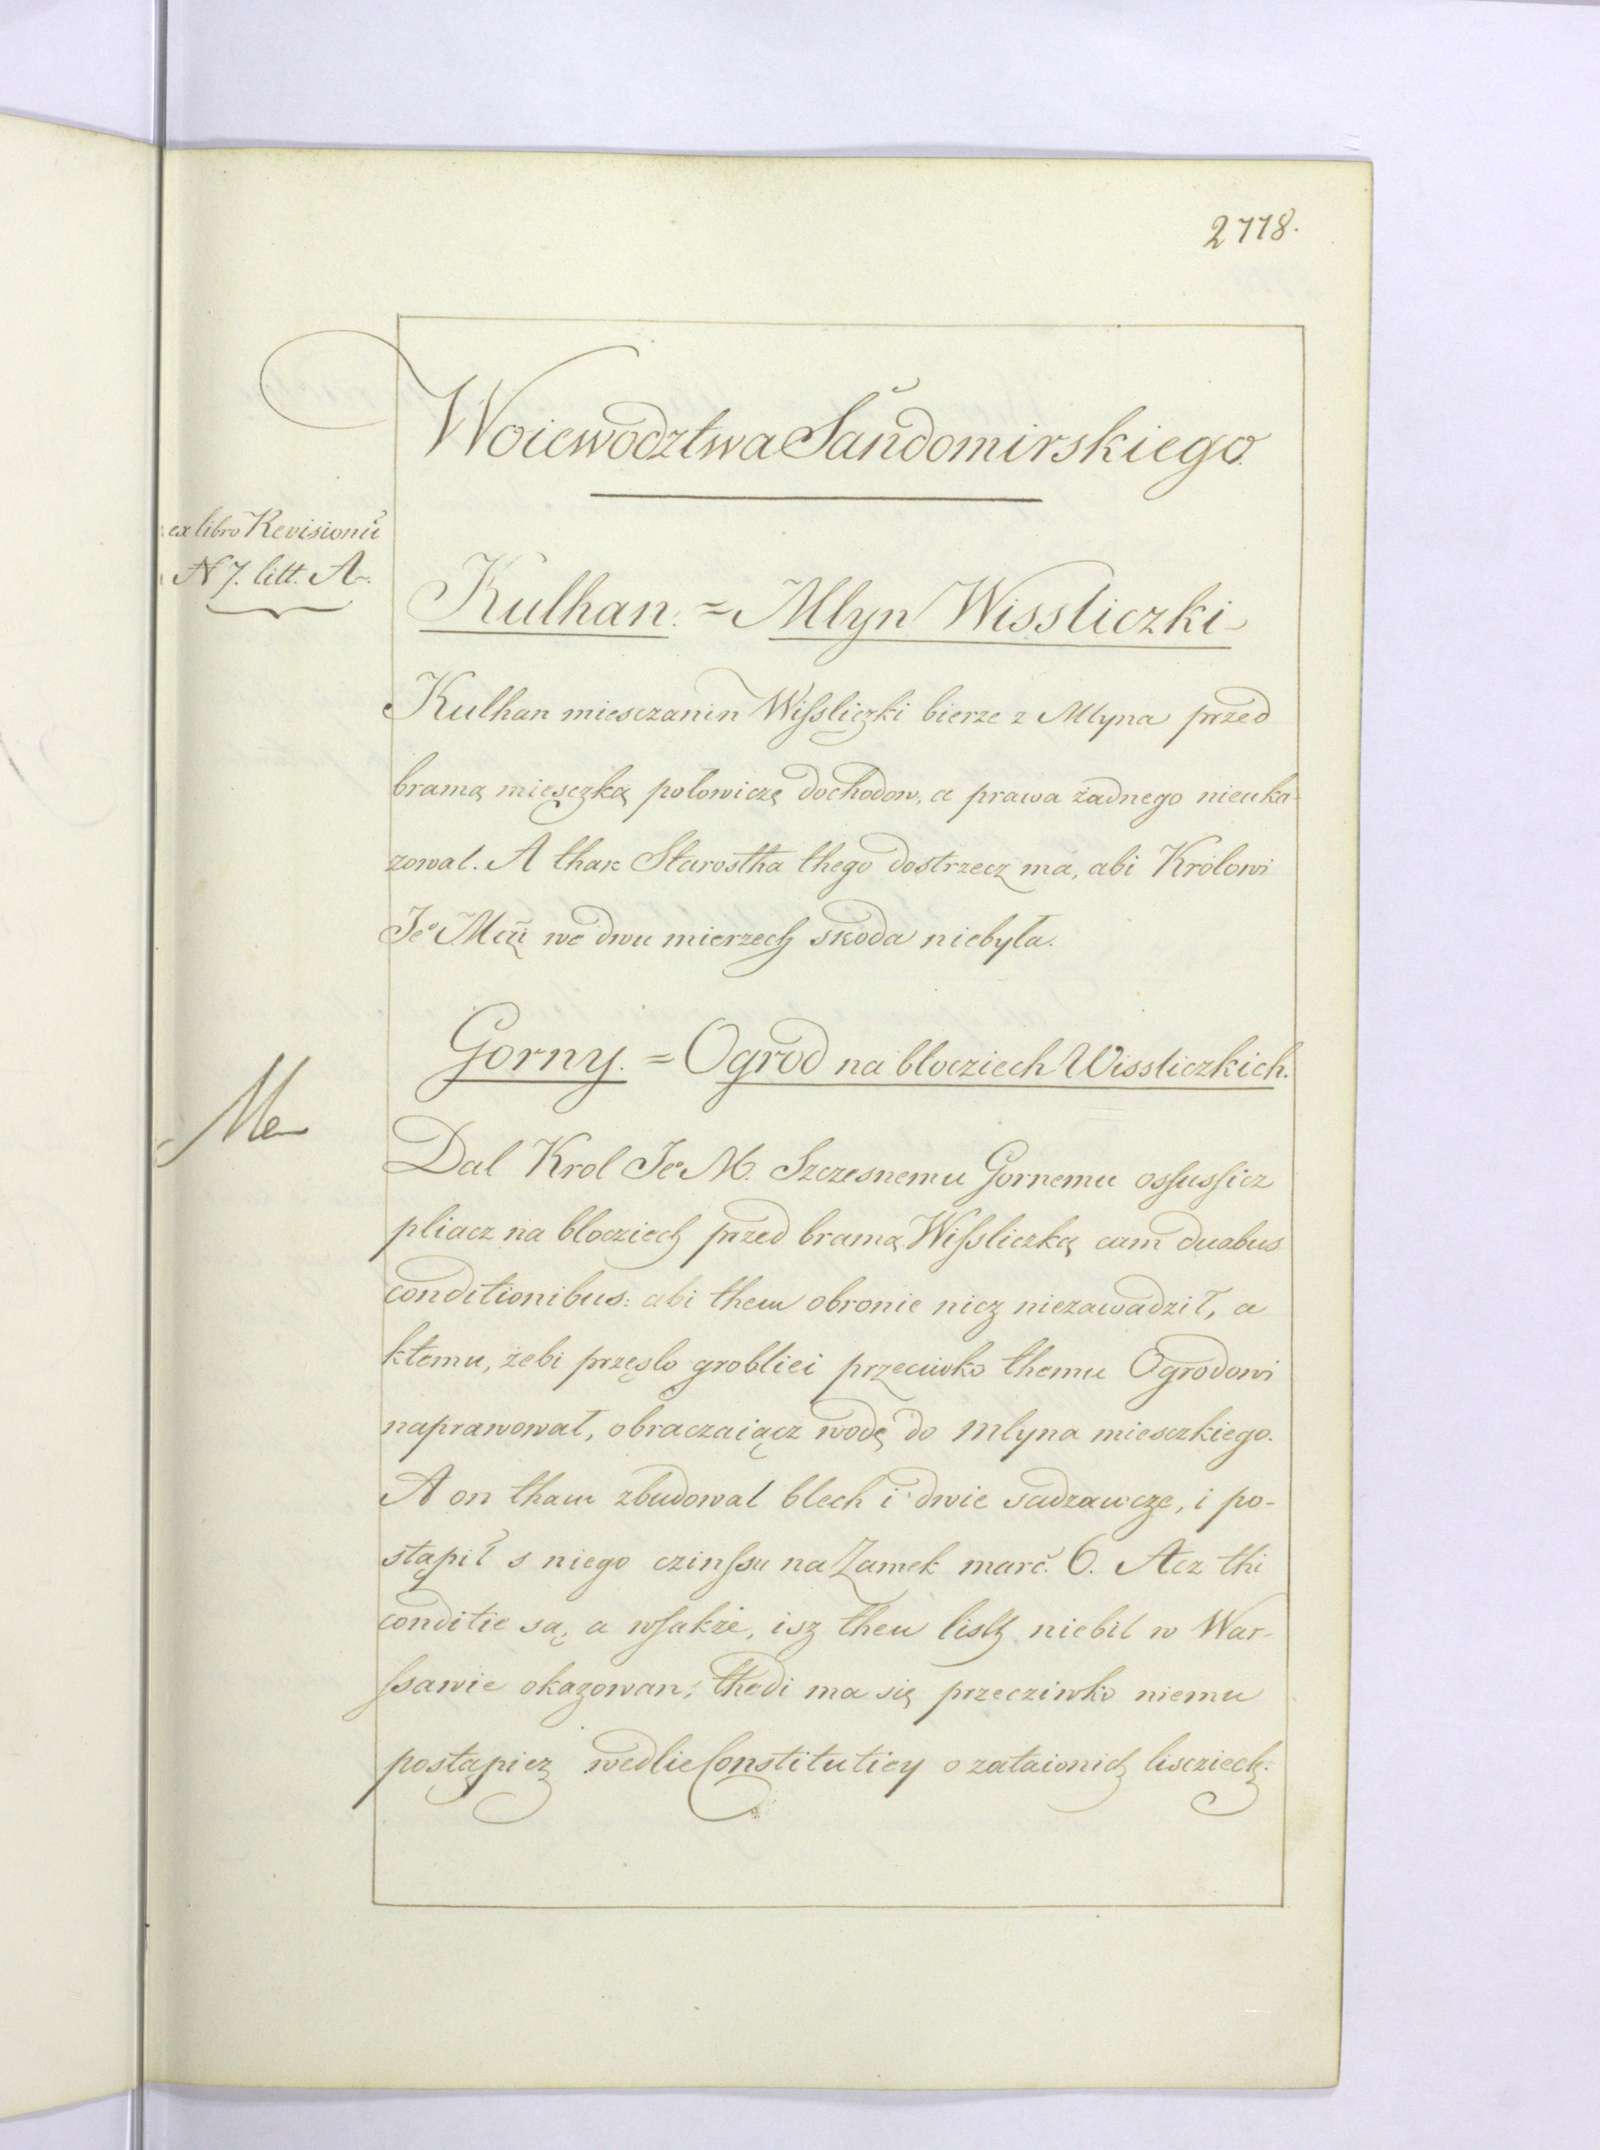 2778.
Woiewodztwa Sandomirskiego
ex libro Revisionũ
N 7. litt. A.
Kulhan. = Mlyn Wissliczki
Kulhan miesczanin Wissliczki bierze z Mlyna przed
bramą mieşczką połowiczę dochodow, a prawa żadnego nieuka-
zował. A thak Starostha thego dostrzecz ma, abi Królowi
Jeº Mći we dwu mierzech skoda niebyła.
Gorny. = Ogrod na blocziech Wissliczkich.
Me
Dal Krol Jeº M. Szczesnemu Gornemu ossussicz
pliacz na blocziech przed bramą Wissliczką cum duabus
conditionibus: abi them obronie nicz niezawadził, a
ktemu, żebi przęslo grobliei przeciwko themu Ogrodowi
naprawował, obraczaiącz wodę do mlyna miesczkiego.
A on tham zbudowal blech i dwie sadzawcze, i po-
stąpił s niego czinssu na Zamek marc. 6. Acz thi
conditie są, a wsakże, isz then listh niebil w War-
ssawie okazowan, thedi ma się przecziwko niemu
postąpicz wedlie Constituticy o zataionich liscziech.